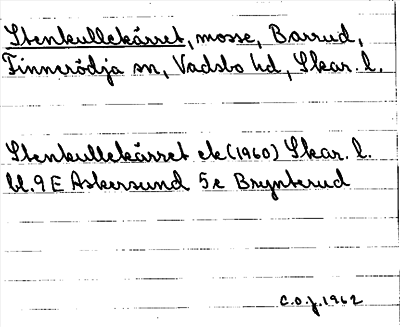 Stenkullekärret, mosse, Barrud,
Finnerödja sn, Vadsbo hd, Skar. l.
Stenkullekärret ek (1960) Skar. l.
bl. 9 E Askersund 5 e Brynterud
C.O.J. 1962